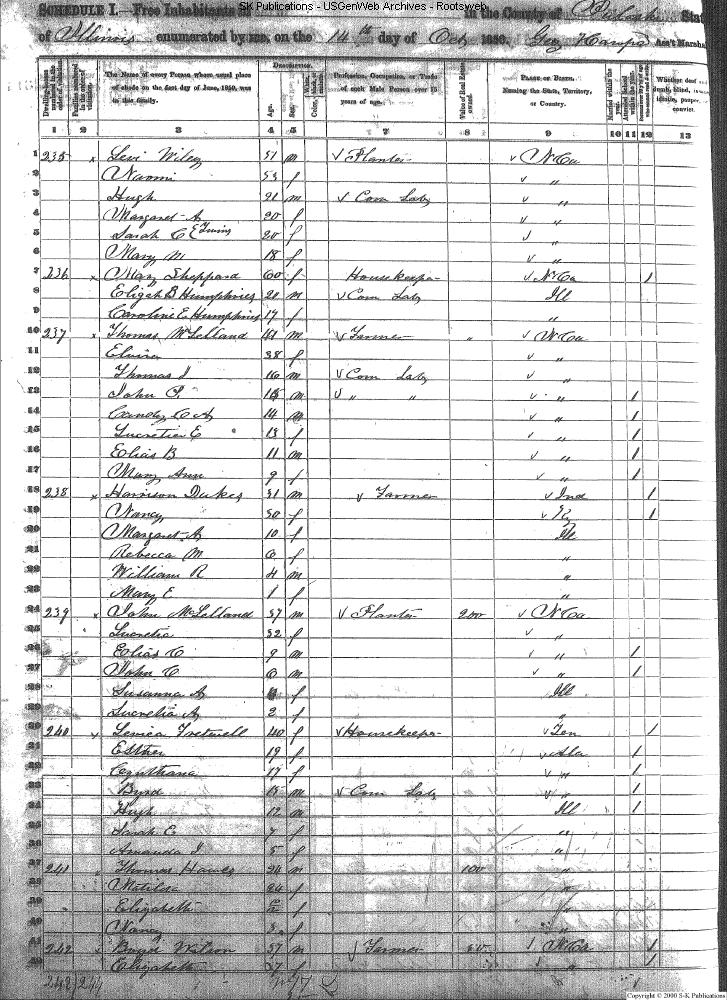 SK Publications - USGenWeb Archives - Rootsweb
SCHEDULE I.—Free Inhabitants in the County of Pulaski State
of Illinois enumerated by me, on the 14th day of Oct 1850. Geo Ass't Marshal
Dwelling-houses numbered in the order of visitation. Families numbered in the order of visitation. The Name of every Person whose usual place of abode on the first day of June, 1850, was in this family. DESCRIPTION. Age. Sex. Color, Profession, Occupation, or Trade of each Male Person over 15 years of age. Value of Real Estate owned. PLACE OF BIRTH. Naming the State, Territory, or Country. Married within the year. Attended School within the year. Whether deaf and dumb, blind, insane, idiotic, pauper, or convict.
1 2 3 4 5 6 7 8 9 10 11 12 13
1 235 x Levi Wiley 51 m v Planter v N Ca
2 Naomi 53 f v "
3 Hugh 21 m v Com Labr v "
4 Margaret A 20 f v "
5 Sarah C E 20 f v "
6 Mary M 18 f v "
7 236 x Mary Sheppard 60 f Housekeeper v N Ca /
8 Elijah B Humphries 20 m v Com Labr Ill
9 Caroline E Humphries 17 f "
10 237 x Thomas McLelland 41 m v Farmer " v N Ca
11 Elvira 38 f v "
12 Thomas J 16 m v Com Labr v "
13 John P. 15 m v " " v " /
14 C A 14 m v " /
15 Lucretia E 13 f v " /
16 Elias B 11 m v " /
17 Mary Ann 9 f v " /
18 238 x Harrison Dukes 31 m v Farmer v Ind /
19 Nancy 30 f v Ky /
20 Margaret A 10 f Ill
21 Rebecca M 6 f "
22 William R 4 m "
23 Mary E 1 f "
24 239 x John McLelland 37 m v Planter 200 v N Ca
25 Lucretia 32 f v "
26 Elias C 9 m v " /
27 John C 6 m v " /
28 Susanna A f Ill
29 Lucretia A 2 f "
30 240 x Fretwell 40 f v Housekeeper v Ten /
31 Esther 19 f v Ala /
32 Cynthana 17 f v " /
33 Byrd 15 m v Com Labr v " /
34 Hugh 12 m Ill /
35 Sarah E 7 f "
36 Amanda J 5 f "
37 241 Thomas Hawes 24 m 100 "
38 Matilda 24 f "
39 Elizabeth f "
40 Nancy f "
41 242 Wilson 37 m v Farmer N Ca /
Elizabeth 27 f " /
Copyright © 2000 S-K Publications